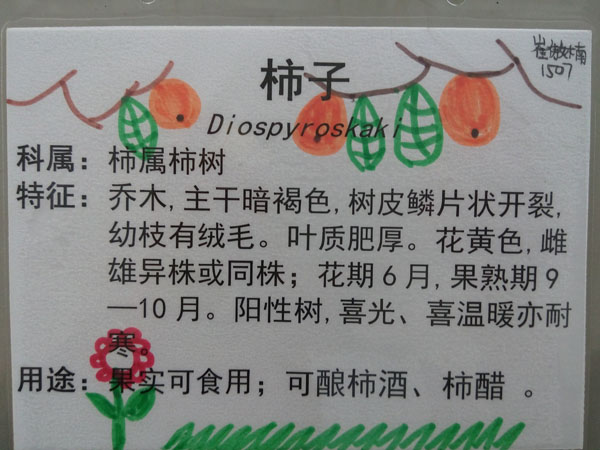 柿子
崔傲楠
1507
Diospyroskaki
科属：柿属柿树
特征：乔木，主干暗褐色，树皮鳞片状开裂，
幼枝有绒毛。叶质肥厚。花黄色，雌
雄异株或同株；花期6月，果熟期9
—10月。阳性树，喜光、喜温暖亦耐
寒。
用途：果实可食用；可酿柿酒、柿醋 。